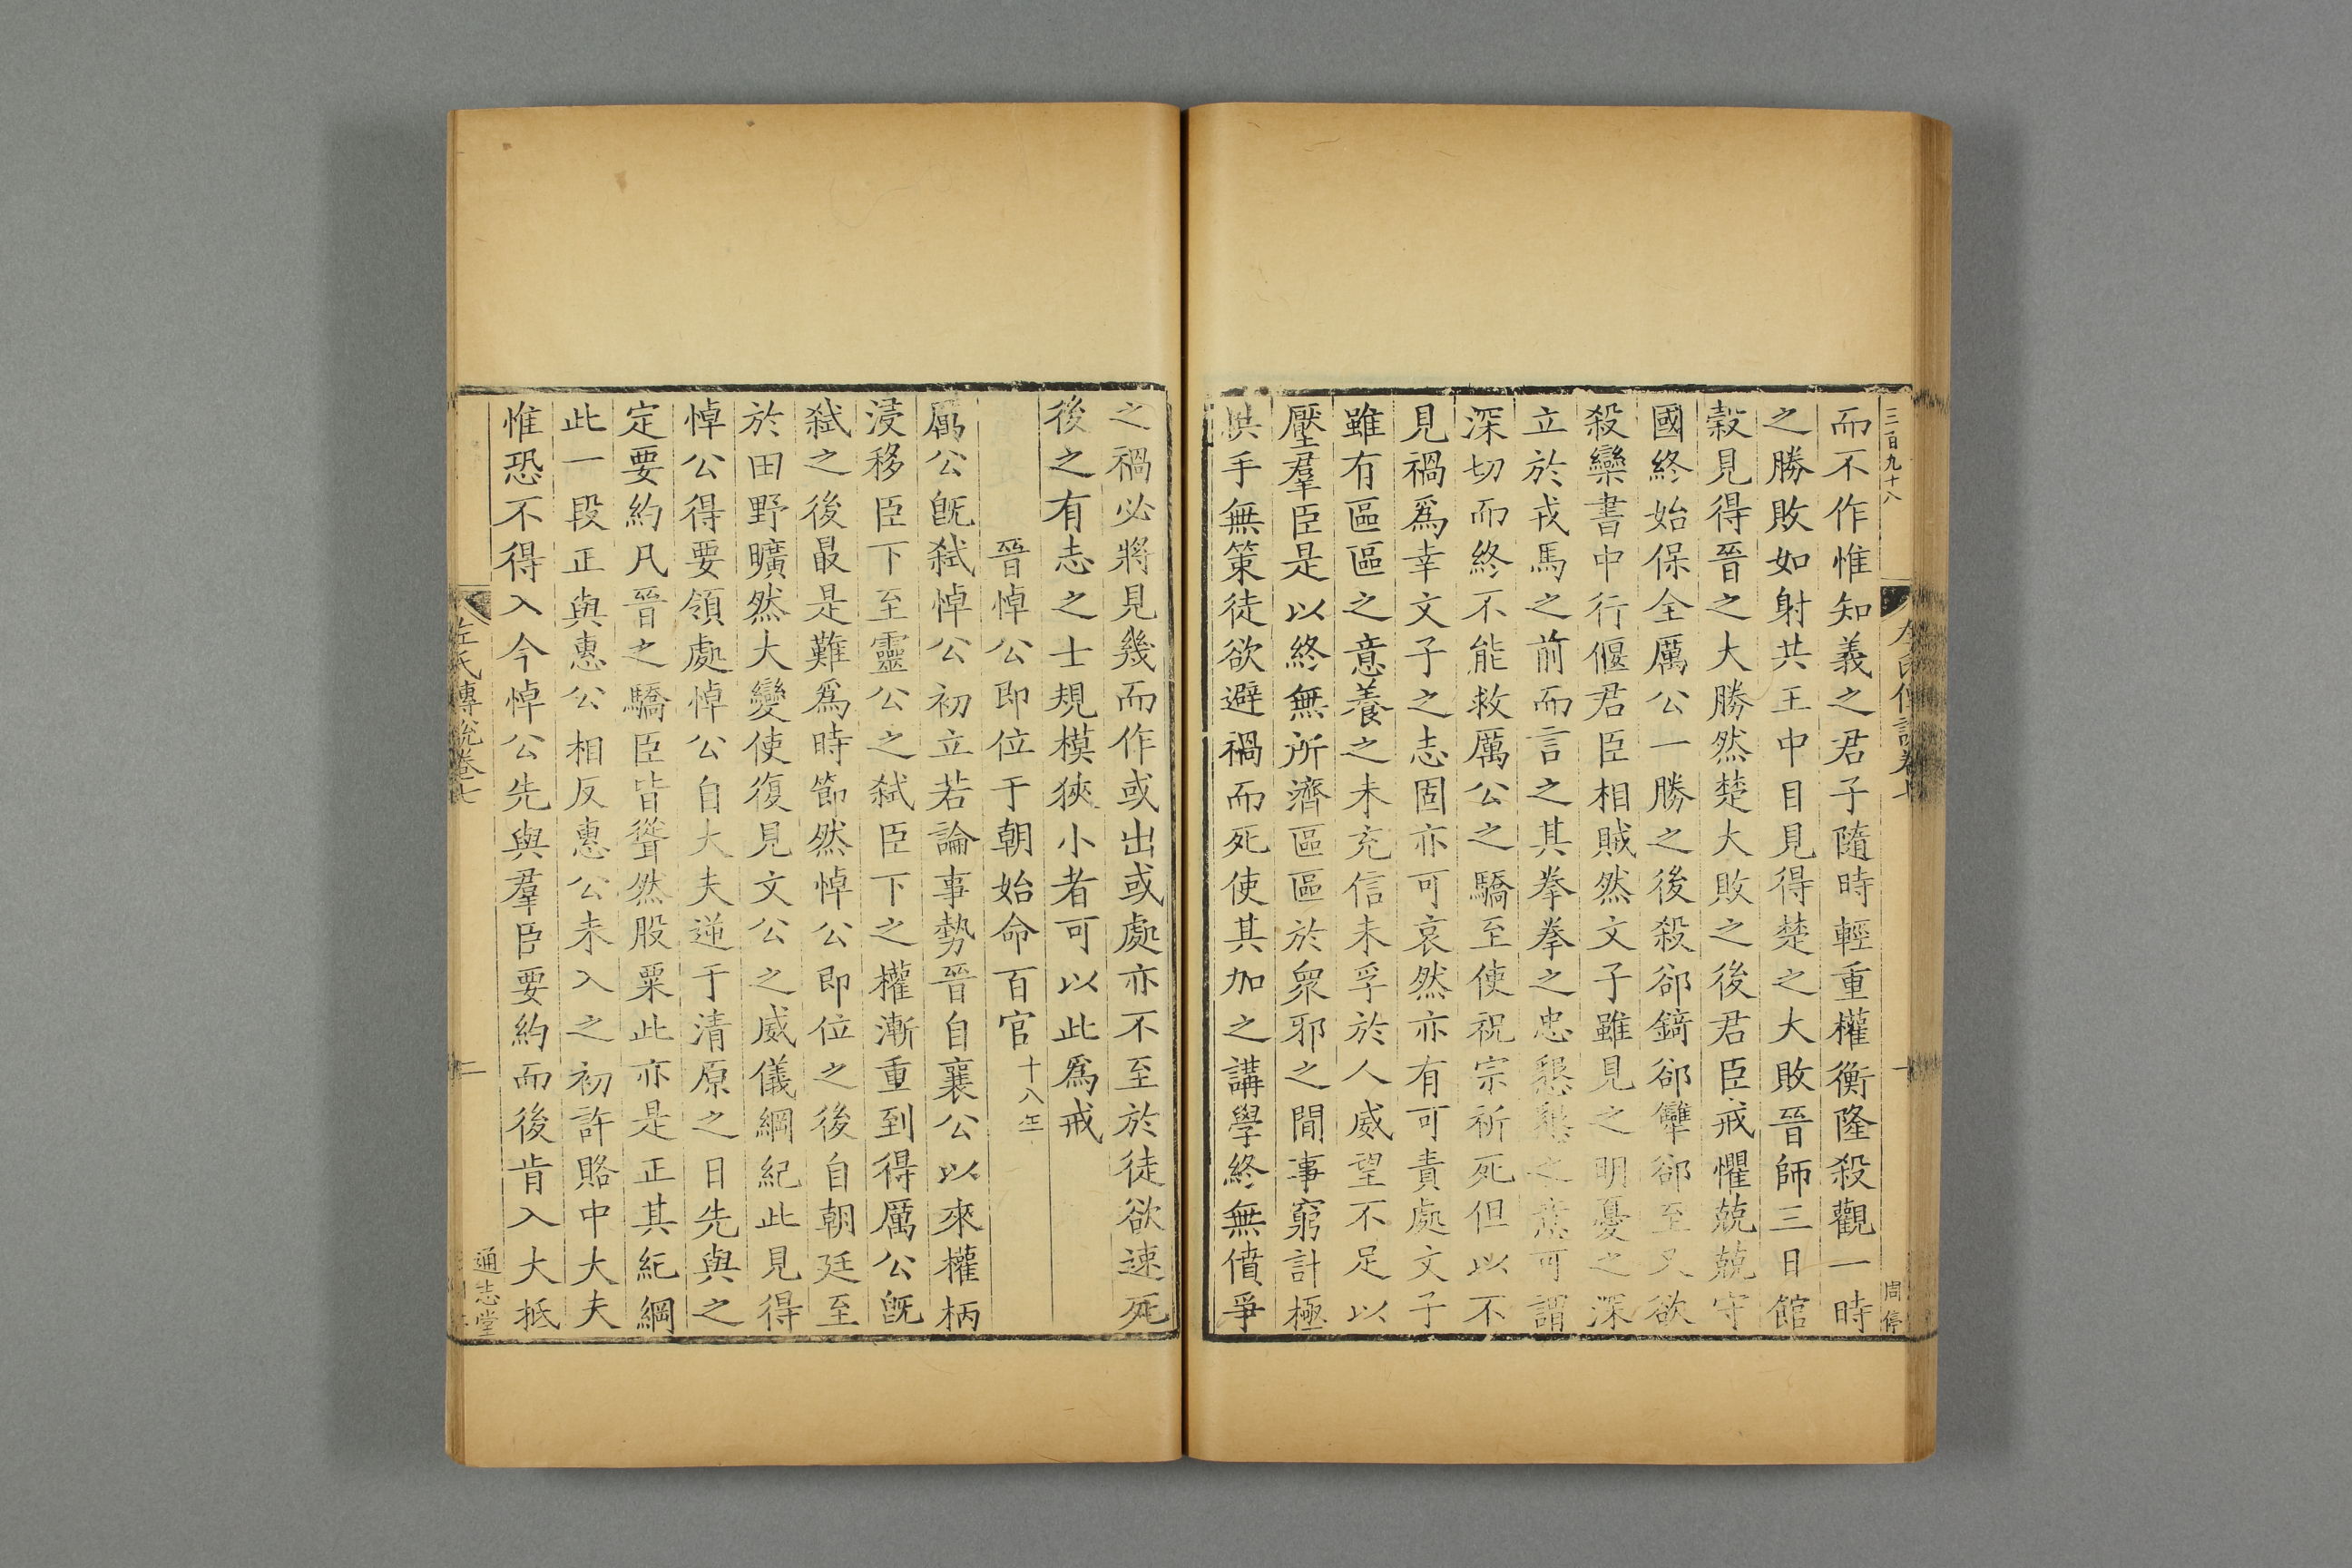 三百九十八
而不作惟知義之君子隨時輕重權衡隆殺觀一時
之勝敗如射共王中目見得楚之大敗晉師三日館
穀見得晉之大勝然楚大敗之後君臣戒懼兢兢守
國終始保全厲公一勝之後殺郤錡郤犨郤至又欲
殺欒書中行偃君臣相賊然文子雖見之明憂之深
立於戎馬之前而言之其拳拳之忠懇懇之意可謂
深切而終不能救厲公之驕至使祝宗祈死但以不
見禍爲幸文子之志固亦可哀然亦有可責處文子
雖有區區之意養之未充信未孚於人威望不足以
壓羣臣是以終無所濟區區於衆邪之間事窮計極
拱手無策徒欲避禍而死使其加之講學終無僨爭
之禍必將見幾而作或出或處亦不至於徒欲速死
後之有志之士規模狹小者可以此爲戒
晉悼公即位于朝始命百官十八年
厲公旣弒悼公初立若論事勢晉自襄公以來權柄
浸移臣下至靈公之弒臣下之權漸重到得厲公旣
弒之後最是難爲時節然悼公即位之後自朝廷至
於田野曠然大變使復見文公之威儀綱紀此見得
悼公得要領處悼公自大夫逆于清原之日先與之
定要約凡晉之驕臣皆聳然股粟此亦是正其紀綱
此一段正與惠公相反惠公未入之初許賂中大夫
惟恐不得入今悼公先與羣臣要約而後肯入大抵
左氏傳說卷七
通志堂